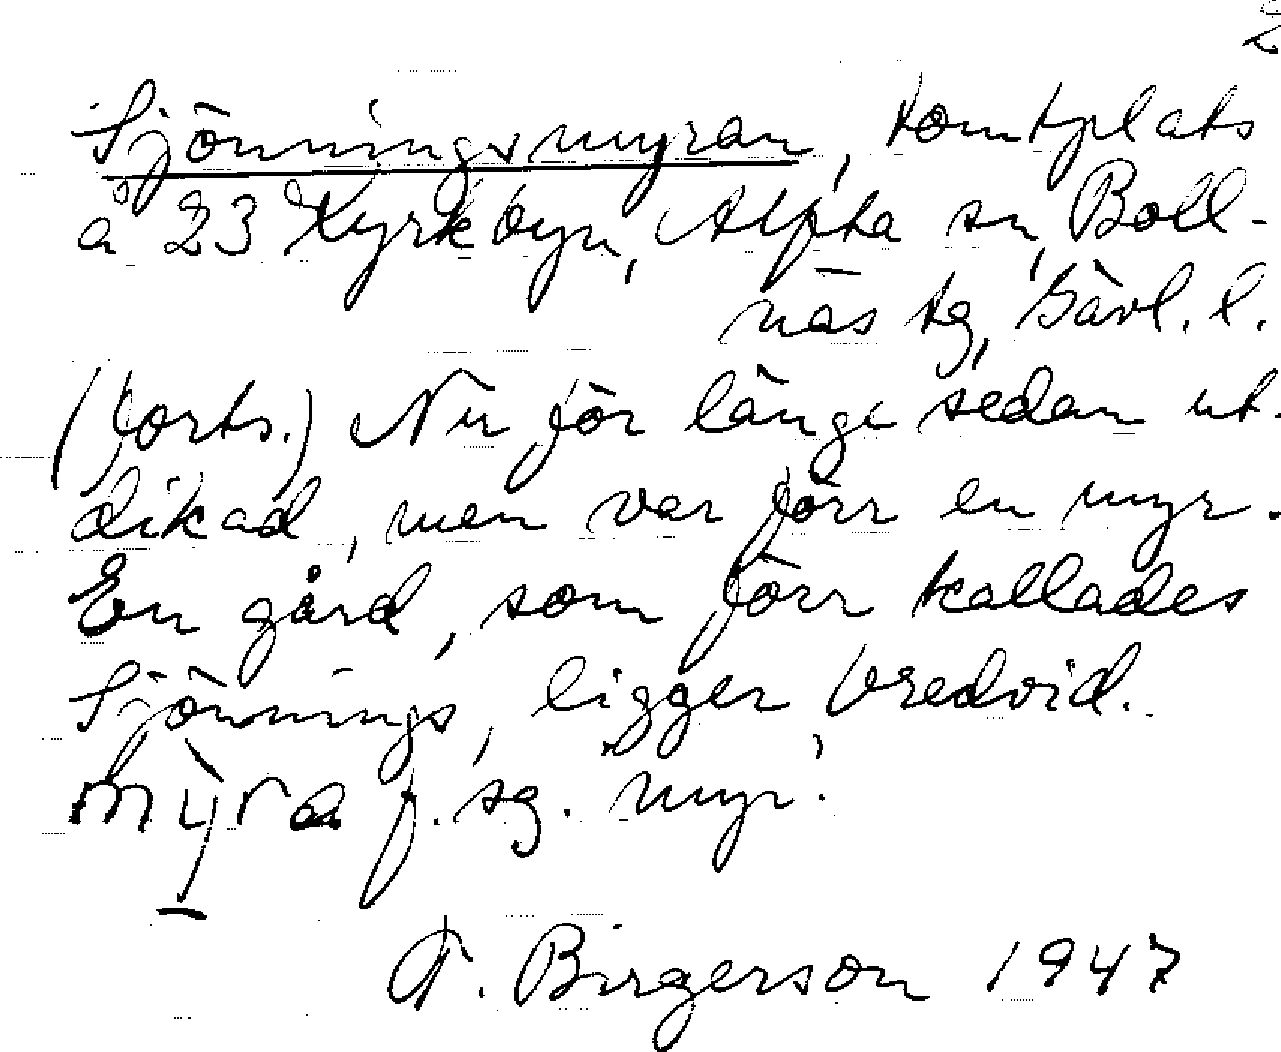 2
Sjönningsmyran, tomtplats
å 23 Kyrkbyn, Alfta sn, Boll-
näs tg, Gävl. l.
(forts.) Nu för länge sedan ut-
dikad, men var förr en myr.
En gård, som förr kallades
Sjönnings, ligger bredvid.
myra f. sg. 'myr'.
F. Birgerson 1947